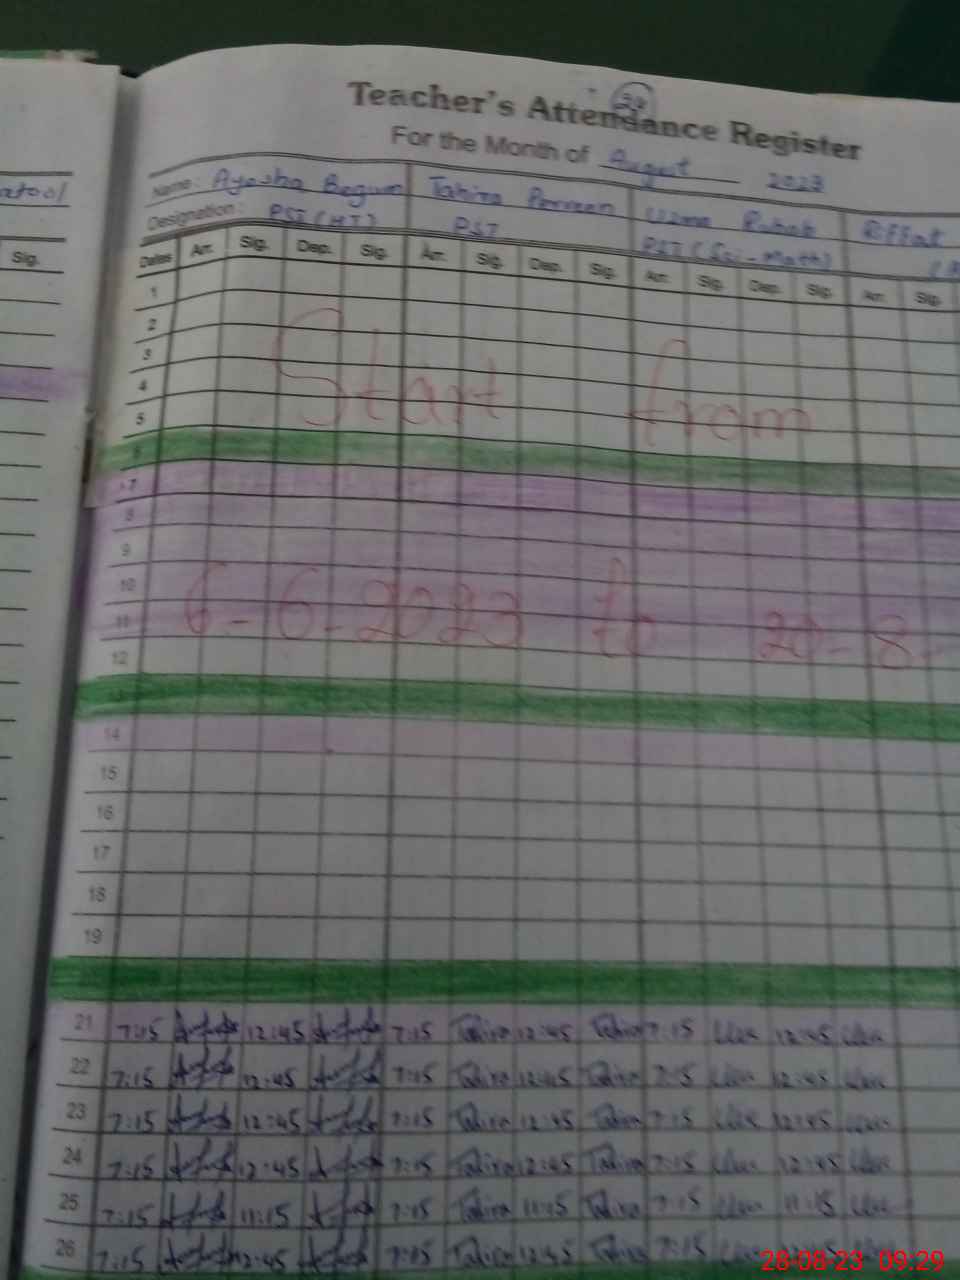 28
Teacher's Attendance Register
For the Month of August 2023
Name: Ayesha Begum Tahira Parveen Uzma Rubab Riffat
Designation: PST (HT) PST PST (Sci-Math)
Sig.
Dates Arr. Sig. Dep. Sig. Arr. Sig. Dep. Sig. Arr. Sig. Dep. Sig. Arr. Sig.
1
2
3
Start from
4
5
6
7
8
9
10
6-6-2023 to 20-8-
11
12
13
14
15
16
17
18
19
21 7:15 12:45 7:15 Tahira 12:45 Tahira 7:15 12:45
22 7:15 12:45 7:15 Tahira 12:45 Tahira 7:15 12:45
23 7:15 12:45 7:15 Tahira 12:45 Tahira 7:15 12:45
24 7:15 12:45 7:15 Tahira 12:45 Tahira 7:15 12:45
25 7:15 11:15 7:15 Tahira 11:15 Tahira 7:15 11:15
26 7:15 12:45 7:15 Tahira 12:45 Tahira 7:15
28-08-23 09:29